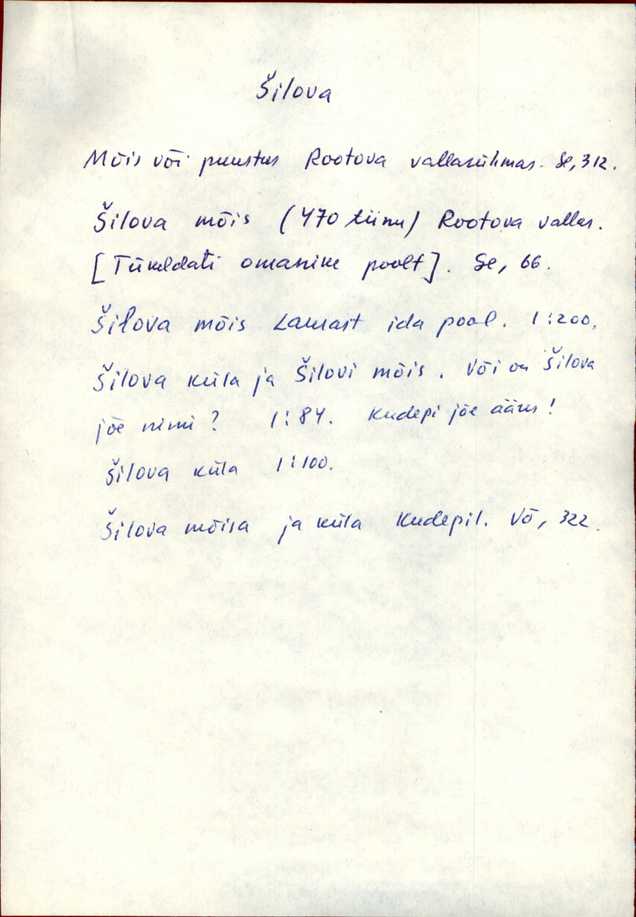 Šilova
Mõis või puustus Rootova vallarühmas. Se, 312.
Šilova mõis (470 tiinu) Rootova vallas.
[Tükeldati omanike poolt]. Se, 66.
Šilova mõis Laurast ida pool. 1:200.
Šilova küla ja Šilovi mõis. Või on Šilova
jõe nimi? 1:84. Kudepi jõe ääres!
Šilova küla 1:100.
Šilova mõisa ja küla Kudepil. Võ, 322.